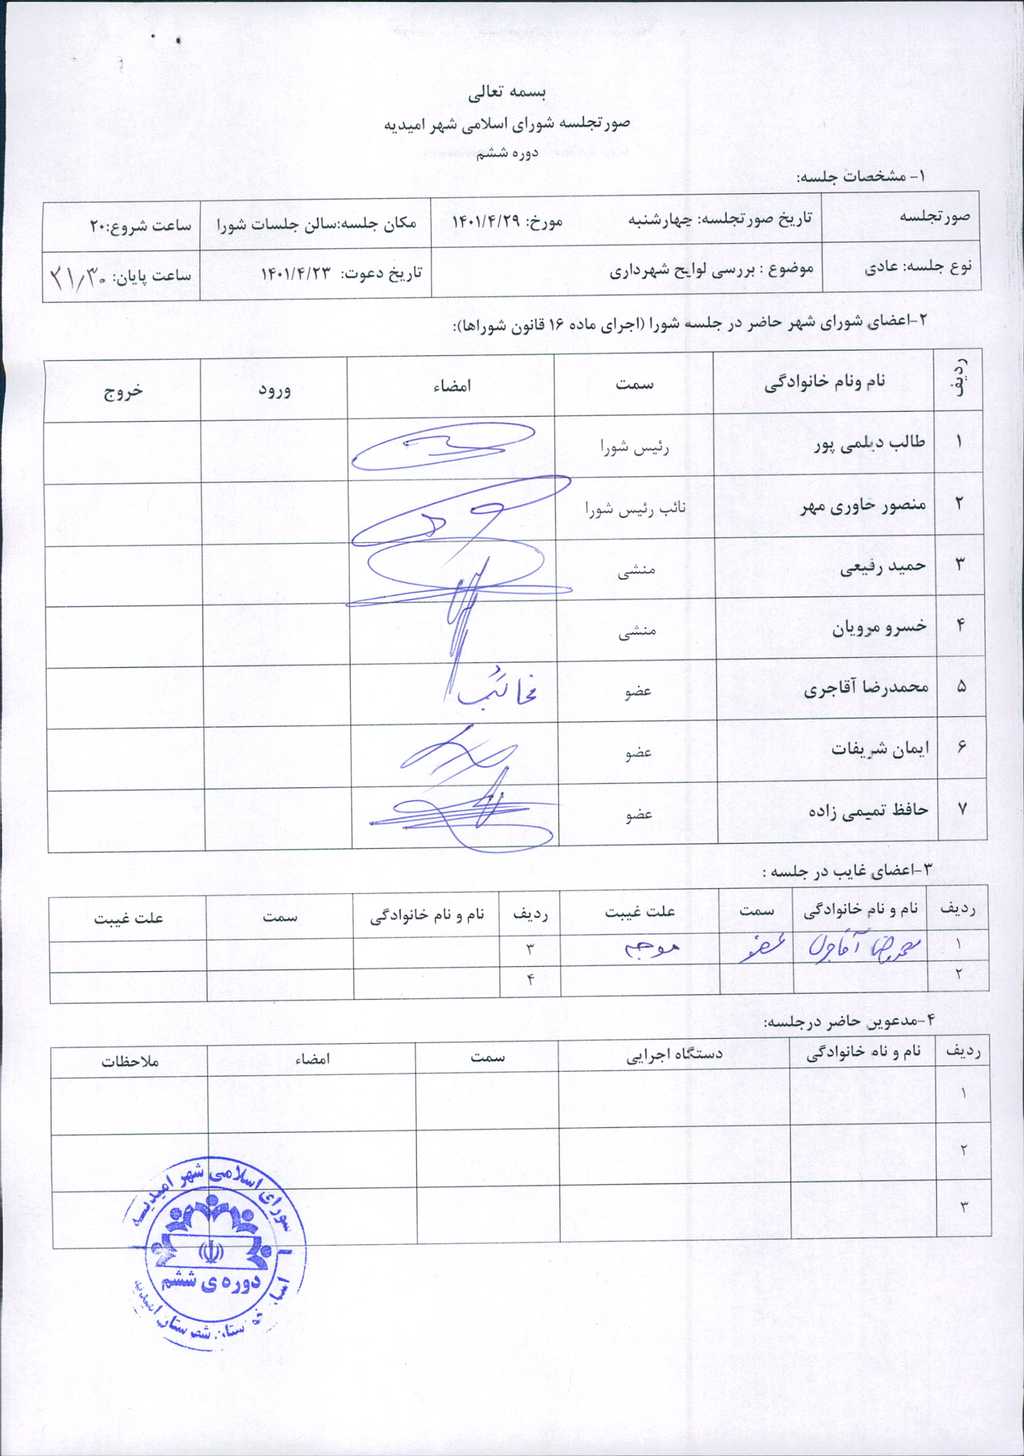 بسمه تعالی
صورتجلسه شورای اسلامی شهر امیدیه
دوره ششم
۱- مشخصات جلسه:
صورتجلسه تاریخ صورتجلسه: چهارشنبه مورخ: ۱۴۰۱/۴/۲۹ مکان جلسه:سالن جلسات شورا ساعت شروع:۲۰
نوع جلسه: عادی موضوع : بررسی لوایح شهرداری تاریخ دعوت: ۱۴۰۱/۴/۲۳ ساعت پایان: ۲۱٫۳۰
۲-اعضای شورای شهر حاضر در جلسه شورا (اجرای ماده ۱۶ قانون شوراها):
ردیف نام ونام خانوادگی سمت امضاء ورود خروج
۱ طالب دیلمی پور رئیس شورا
۲ منصور خاوری مهر نائب رئیس شورا
۳ حمید رفیعی منشی
۴ خسرو مرویان منشی
۵ محمدرضا آقاجری عضو غائب
۶ ایمان شریفات عضو
۷ حافظ تمیمی زاده عضو
۳-اعضای غایب در جلسه :
ردیف نام و نام خانوادگی سمت علت غیبت ردیف نام و نام خانوادگی سمت علت غیبت
۱ محمدرضا آقاجری عضو موجه ۳
۲ ۴
۴-مدعوین حاضر درجلسه:
ردیف نام و نام خانوادگی دستگاه اجرایی سمت امضاء ملاحظات
۱
۲
۳
شورای اسلامی شهر امیدیه
دوره ی ششم
شهرستان امیدیه